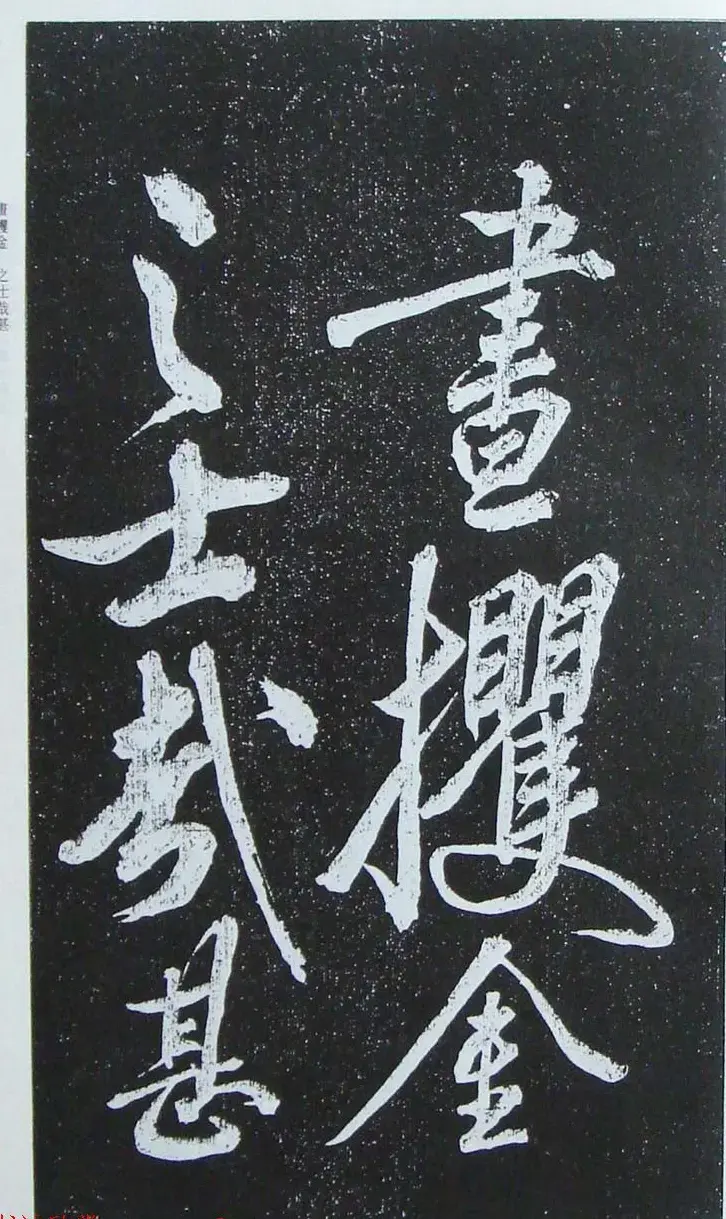 晝攫金
之士哉甚
晝攫金 之士哉甚